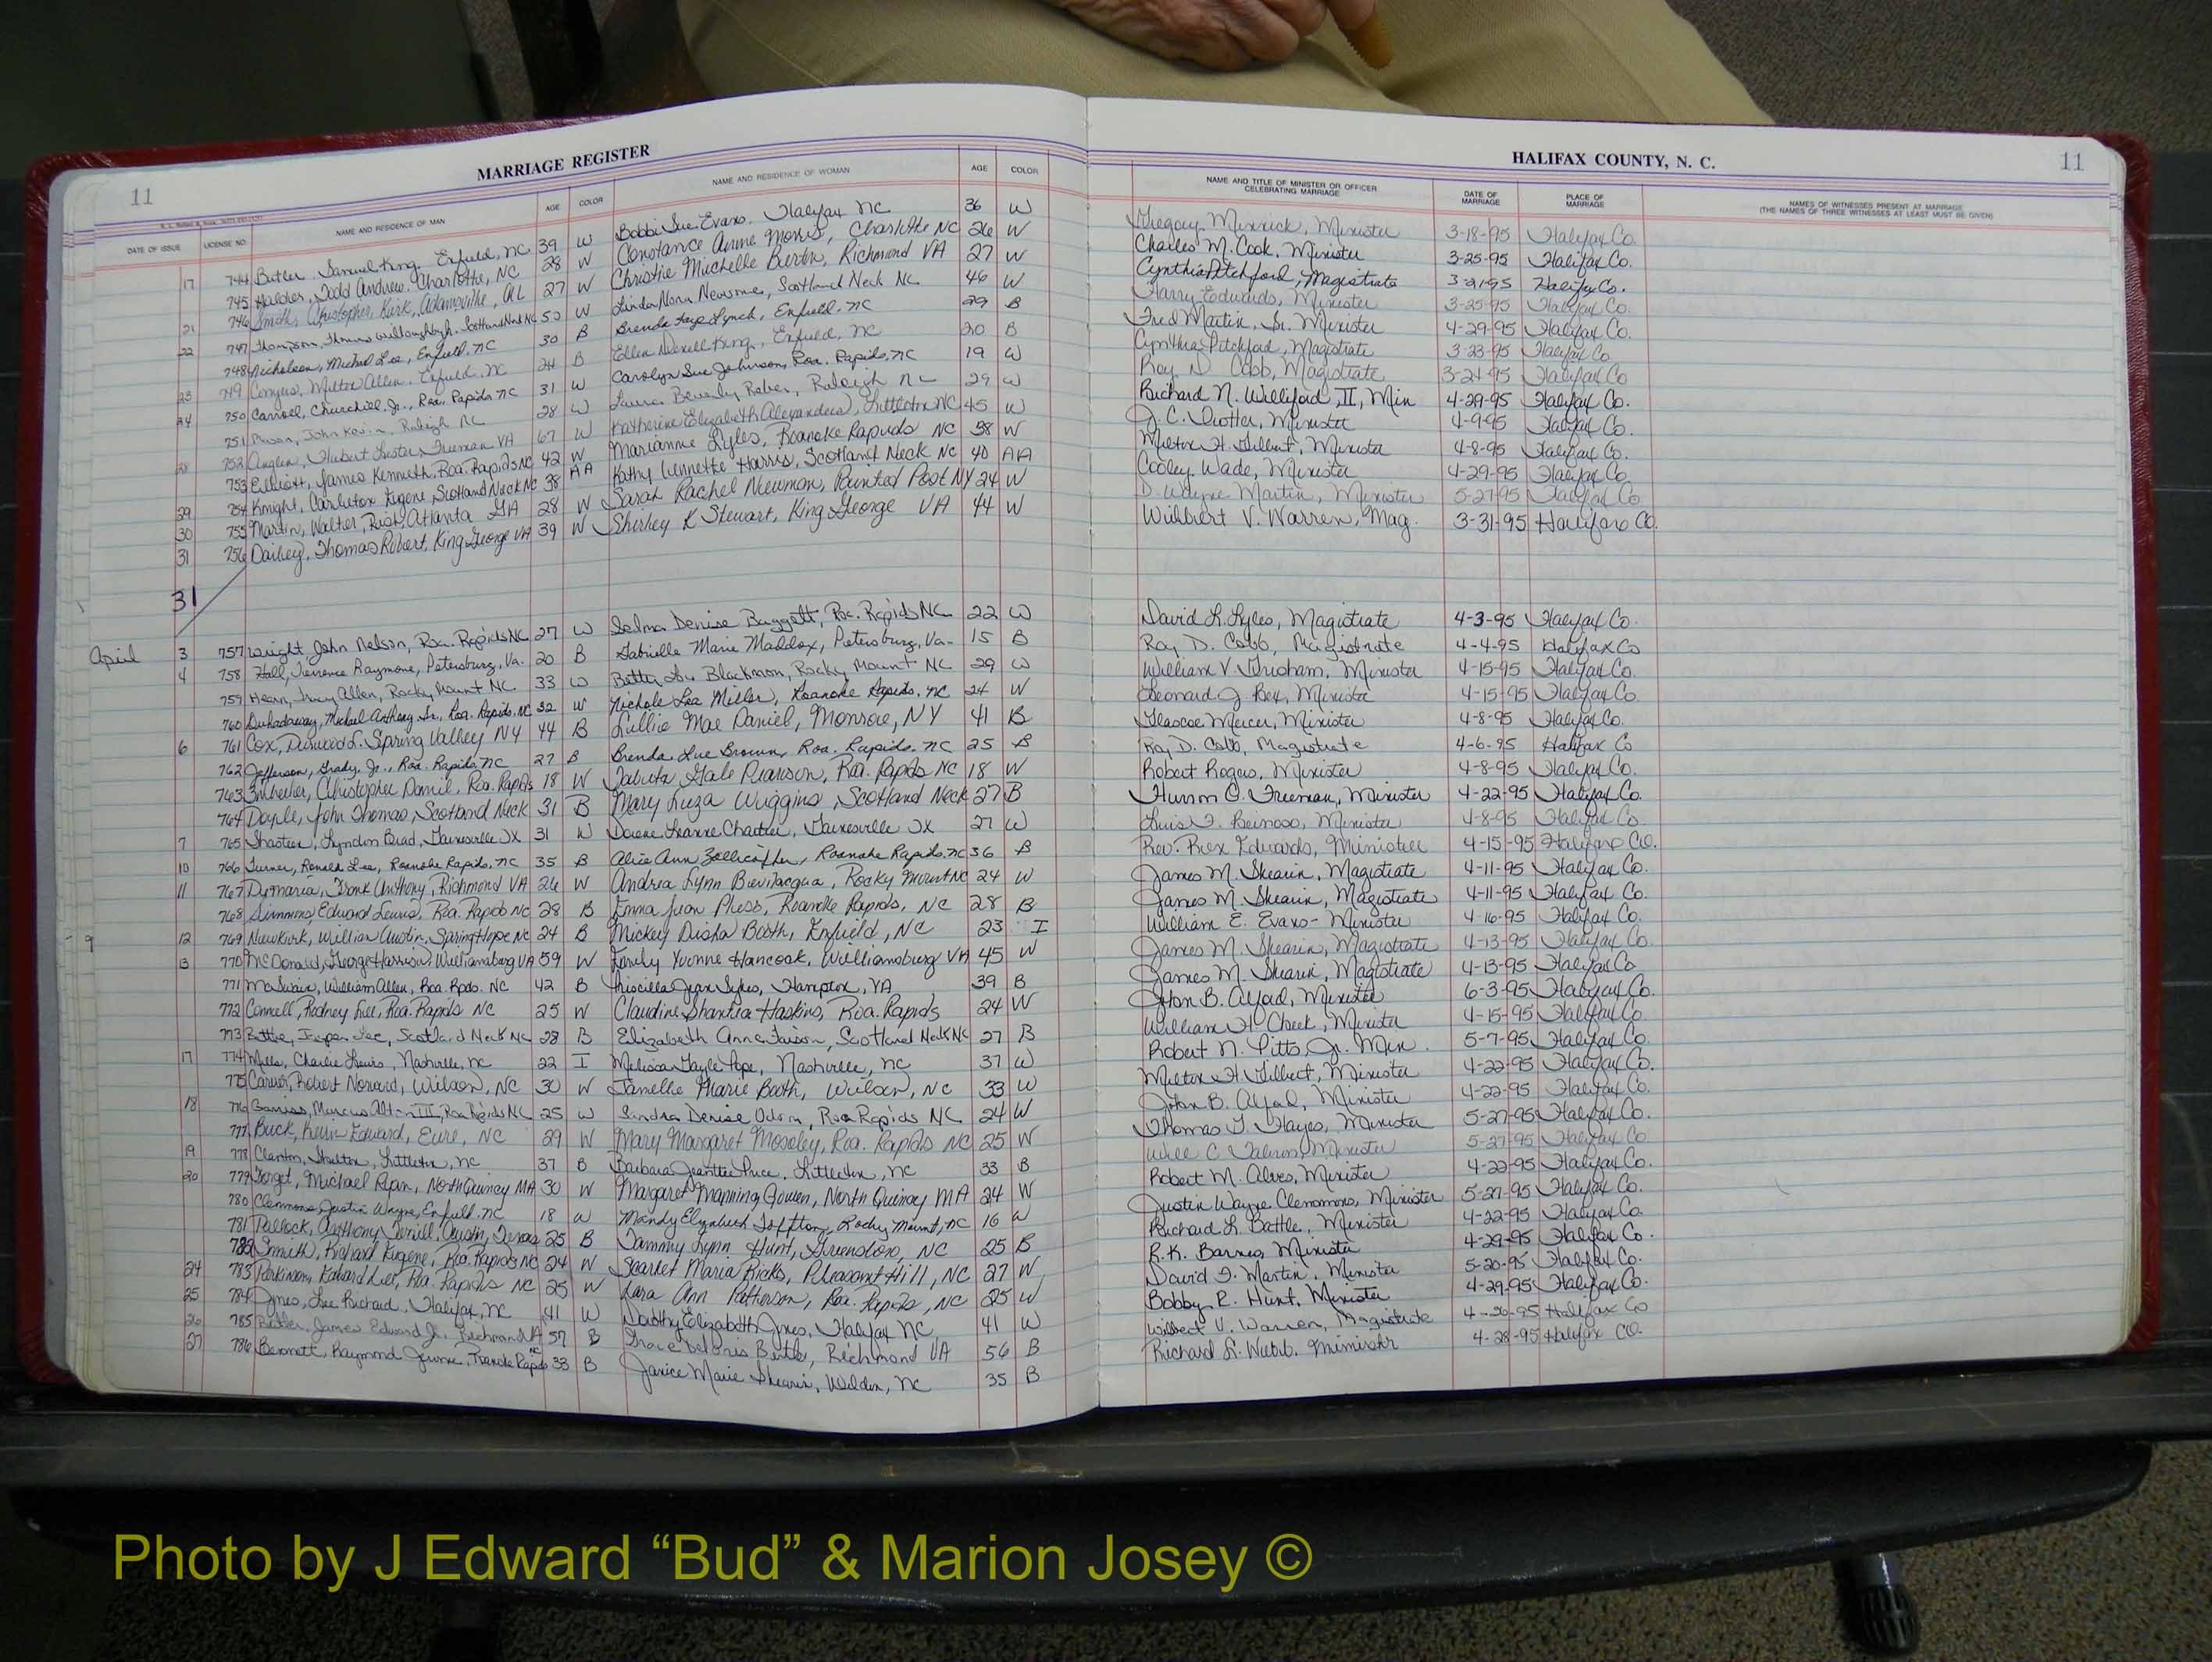 11
MARRIAGE REGISTER
HALIFAX COUNTY, N. C.
11
DATE OF ISSUE LICENSE NO. NAME AND RESIDENCE OF MAN AGE COLOR NAME AND RESIDENCE OF WOMAN AGE COLOR NAME AND TITLE OF MINISTER OR OFFICER CELEBRATING MARRIAGE DATE OF MARRIAGE PLACE OF MARRIAGE NAMES OF WITNESSES PRESENT AT MARRIAGE (THE NAMES OF THREE WITNESSES AT LEAST MUST BE GIVEN)
17 744 Butler, Samuel King, Enfield, NC 39 W Bobbi Sue Evans, Halifax NC 36 W Gregory Minnick, Minister 3-18-95 Halifax Co.
745 Todd Andrew, Charlotte, NC 28 W Constance Anne Morris, Charlotte NC 26 W Charles M. Cook, Minister 3-25-95 Halifax Co.
746 Smith, Christopher Kirk, Adamsville, AL 27 W Christie Michelle Richmond VA 27 W Cynthia Pitchford, Magistrate 3-21-95 Halifax Co.
21 747 Thompson, Thomas Willoughby, Scotland Neck NC 50 W Linda Nora Newsome, Scotland Neck NC 46 W Harry Edwards, Minister 3-25-95 Halifax Co.
22 748 Nicholson, Michael Lee, Enfield, NC 30 B Brenda Faye Lynch, Enfield, NC 29 B Fred Martin, Sr. Minister 4-29-95 Halifax Co.
749 Conyers, Milton Allen, Enfield, NC 24 B Ellen King, Enfield, NC 20 B Cynthia Pitchford, Magistrate 3-23-95 Halifax Co
23 750 Carroll, Churchill, Jr., Roa. Rapids NC 31 W Carolyn Sue Johnson, Roa. Rapids, NC 19 W Roy D. Cobb, Magistrate 3-24-95 Halifax Co
24 751 John Kevin, Raleigh NC 28 W Laura Beverly Raleigh NC 29 W Richard N. Williford, II, Min 4-29-95 Halifax Co.
752 Hubert Lester, VA 67 W Katherine Elizabeth Littleton NC 45 W J. C. Minister 4-9-95 Halifax Co.
28 753 Elliott, James Kenneth, Roa. Rapids NC 42 W Marianne Lyles, Roanoke Rapids NC 38 W Milton H. Gilbert, Minister 4-8-95 Halifax Co.
29 754 Knight, Carleton Eugene, Scotland Neck NC 38 AA Kathy Lennette Harris, Scotland Neck NC 40 AA Cooley Wade, Minister 4-29-95 Halifax Co
30 755 Martin, Walter Atlanta GA 28 W Sarah Rachel Newman, Painted Post NY 24 W D. Wayne Martin, Minister 5-27-95 Halifax Co
31 756 Dailey, Thomas Robert, King George VA 39 W Shirley K Stewart, King George VA 44 W Wilbert V. Warren, Mag. 3-31-95 Halifax Co.
31
April 3 757 Wright, John Nelson, Roa. Rapids NC 27 W Selma Denise Baggett, Roa. Rapids NC 22 W David L. Lyles, Magistrate 4-3-95 Halifax Co.
4 758 Hall, Terrence Raymone, Petersburg, Va. 20 B Gabrielle Marie Maddox, Petersburg, Va- 15 B Roy D. Cobb, Magistrate 4-4-95 Halifax Co
759 Hearn, Tracy Allen, Rocky Mount NC 33 W Betty Lou Blackmon, Rocky Mount NC 29 W William V. Grisham, Minister 4-15-95 Halifax Co.
760 Michael Anthony Sr., Roa. Rapids, NC 32 W Nichole Lea Miller, Roanoke Rapids, NC 24 W Leonard J. Rex, Minister 4-15-95 Halifax Co.
6 761 Cox, Durwood L. Spring Valley NY 44 B Lillie Mae Daniel, Monroe, NY 41 B Glascoe Mercer, Minister 4-8-95 Halifax Co.
762 Jefferson, Grady, Jr., Roa. Rapids, NC 27 B Brenda Lue Brown, Roa. Rapids, NC 25 B Roy D. Cobb, Magistrate 4-6-95 Halifax Co
763 Christopher Daniel, Roa. Rapids 18 W Tabitha Gale Pearson, Roa. Rapids NC 18 W Robert Rogers, Minister 4-8-95 Halifax Co.
764 Doyle, John Thomas, Scotland Neck 31 B Mary Liza Wiggins, Scotland Neck 27 B C. Freeman, Minister 4-22-95 Halifax Co.
7 765 Lyndon Brad, Gainesville TX 31 W Leanne Gainesville TX 27 W Luis F. Reinoso, Minister 4-8-95 Halifax Co.
10 766 Turner, Ronald Lee, Roanoke Rapids, NC 35 B Alice Ann Zollicoffer, Roanoke Rapids, NC 36 B Rev. Rex Edwards, Minister 4-15-95 Halifax Co.
11 767 Demaria, Frank Anthony, Richmond VA 26 W Andrea Lynn Bevilacqua, Rocky Mount NC 24 W James M. Shearin, Magistrate 4-11-95 Halifax Co.
768 Simmons, Edward Lewis, Roa. Rapids NC 28 B Emma Jean Pless, Roanoke Rapids, NC 28 B James M. Shearin, Magistrate 4-11-95 Halifax Co.
9 12 769 Newkirk, William Austin, Spring Hope NC 24 B Mickey Disha Booth, Enfield, NC 23 I William E. Evans - Minister 4-16-95 Halifax Co.
13 770 McDonald, George Harrison, Williamsburg VA 59 W Emily Yvonne Hancock, Williamsburg VA 45 W James M. Shearin, Magistrate 4-13-95 Halifax Co.
771 McSwain, William Allen, Roa. Rpds. NC 42 B Priscilla Jean Sykes, Hampton, VA 39 B James M. Shearin, Magistrate 4-13-95 Halifax Co
772 Connell, Rodney Lee, Roa. Rapids NC 25 W Claudine Shantea Haskins, Roa. Rapids 24 W John B. Alford, Minister 6-3-95 Halifax Co.
773 Battle, Jasper Lee, Scotland Neck NC 28 B Elizabeth Anne Faison, Scotland Neck NC 27 B William H. Cheek, Minister 4-15-95 Halifax Co.
17 774 Mills, Charlie Louis, Nashville, NC 22 I Melissa Gayle Pope, Nashville, NC 37 W Robert N. Pitts, Jr. Min. 5-7-95 Halifax Co.
775 Carver, Robert Norwood, Wilson, NC 30 W Janelle Marie Booth, Wilson, NC 33 W Milton H. Gilbert, Minister 4-22-95 Halifax Co.
18 776 Marcus Alton III, Roa Rapids NC 25 W Sandra Denise Odom, Roa Rapids NC 24 W John B. Alford, Minister 4-22-95 Halifax Co.
777 Buck, Kevin Edward, Eure, NC 29 W Mary Margaret Moseley, Roa. Rapids NC 25 W Thomas J. Hayes, Minister 5-27-95 Halifax Co.
19 778 Clanton, Shelton, Littleton, NC 37 B Barbara Jeantte Littleton, NC 33 B Minister 5-27-95 Halifax Co
20 779 Forget, Michael Ryan, North Quincy MA 30 W Margaret Manning Gowen, North Quincy MA 24 W Robert M. Alves, Minister 4-22-95 Halifax Co.
780 Clemmons, Justin Wayne, Enfield, NC 18 W Mandy Elizabeth Rocky Mount, NC 16 W Justin Wayne Clemmons, Minister 5-27-95 Halifax Co.
781 Anthony Terrill, Austin, Texas 25 B Tammy Lynn Hunt, Greensboro, NC 25 B Richard L. Battle, Minister 4-22-95 Halifax Co.
782 Smith, Richard Eugene, Roa. Rapids NC 24 W Scarlet Maria Ricks, Pleasant Hill, NC 27 W R. K. Barnes, Minister 4-29-95 Halifax Co.
24 783 Parkinson, Edward Lee, Roa. Rapids NC 25 W Kara Ann Patterson, Roa. Rapids, NC 25 W David F. Martin, Minister 5-20-95 Halifax Co.
25 784 Jones, Lee Richard, Halifax, NC 41 W Dorothy Elizabeth Jones, Halifax NC 41 W Bobby R. Hunt, Minister 4-29-95 Halifax Co.
26 785 James Edward Jr., Richmond VA 57 B Grace Richmond VA 56 B Wilbert V. Warren, Magistrate 4-26-95 Halifax Co
27 786 Bennett, Raymond Jerome, Roanoke Rapids NC 33 B Janice Marie Shearin, Weldon, NC 35 B Richard L. Webb, Minister 4-28-95 Halifax Co.
Photo by J Edward “Bud” & Marion Josey ©